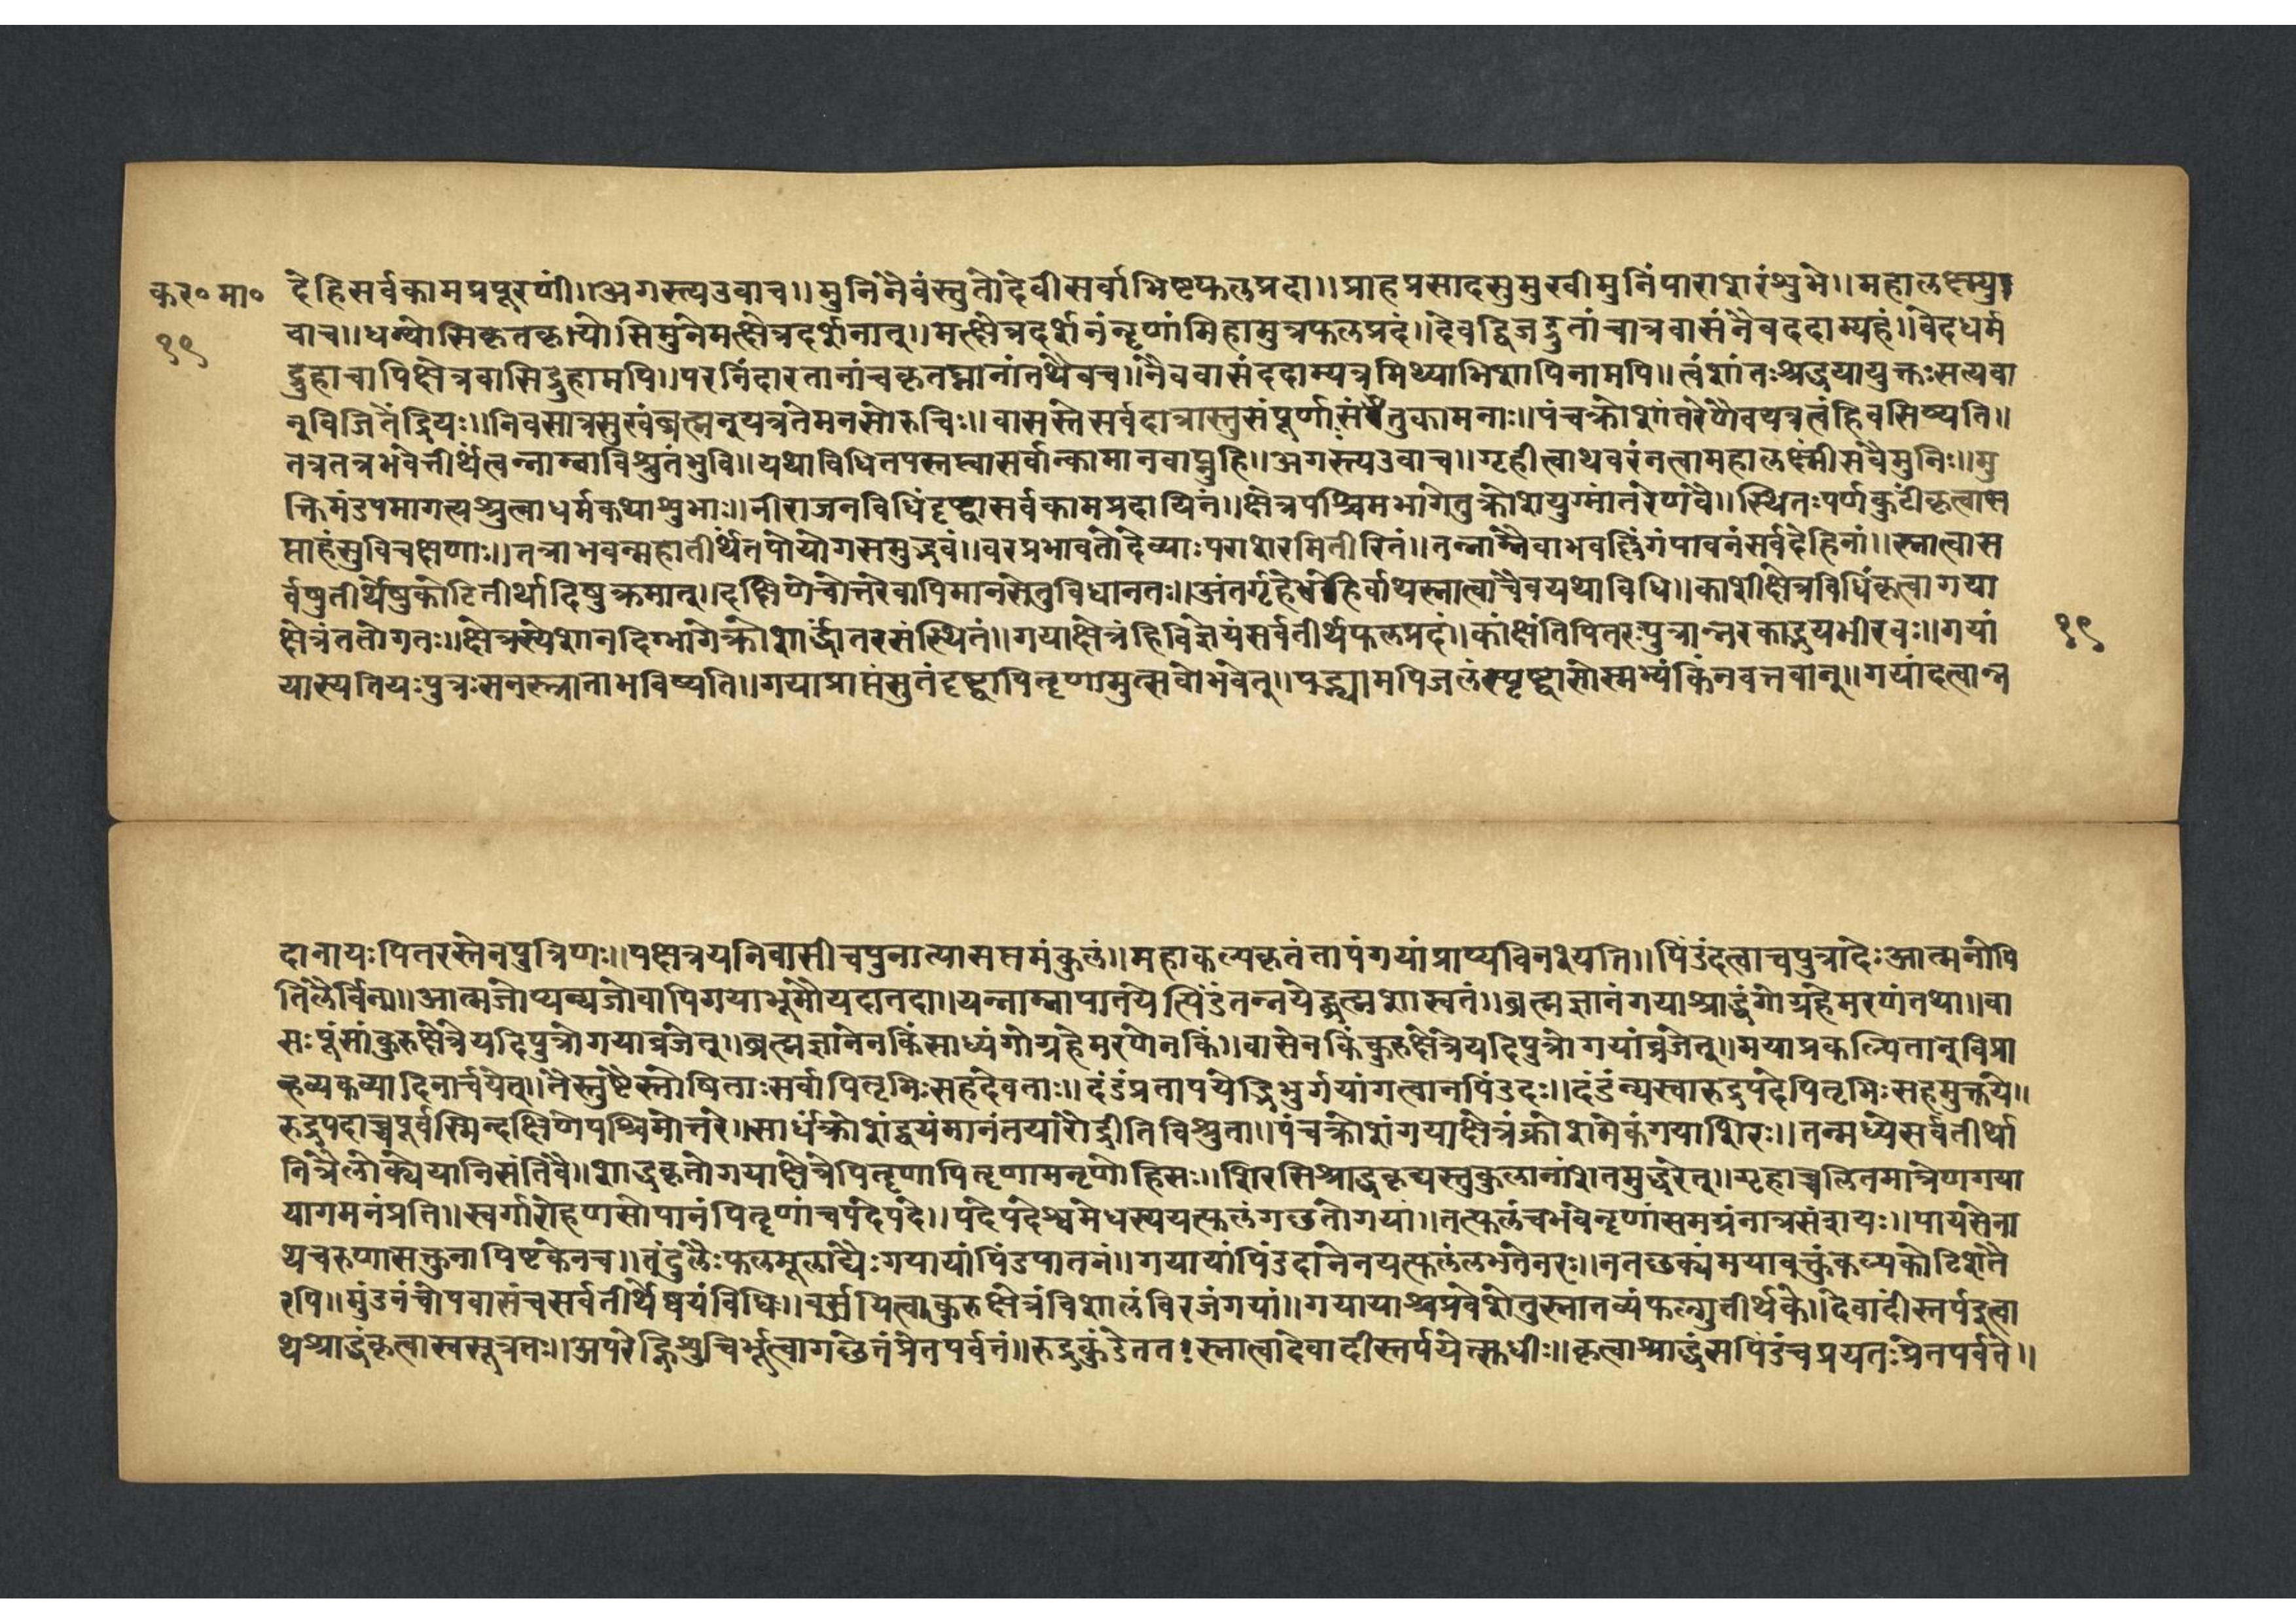 कर॰मा॰ देहिसर्वकामप्रपूरणीं॥अगस्त्यउवाच॥मुनिनैवंस्तुतोदेवीसर्वाभिष्टफलप्रदा॥प्राहप्रसादसुमुखीमुनिंपाराशरंशुभे॥महालक्ष्म्यु
१९ वाच॥धन्योसिकृतकृत्योसिमुनेमत्क्षेत्रदर्शनात्॥मत्क्षेत्रदर्शनंनृणांमिहामुत्रफलप्रदं॥देवद्विजद्रुतांचात्रवासंनैवददाम्यहं॥वेदधर्म
द्रुहाचापिक्षेत्रवासिद्रुहामपि॥परनिंदारतानांचकृतघ्नानांतथैवच॥नैववासंददाम्यत्रमिथ्याभिशापिनामपि॥त्वंशांतःश्रद्धयायुक्तःसत्यवा
न्विजितेंद्रियः॥निवसात्रसुखंब्रह्मन्यत्रतेमनसोरुचिः॥वासस्तेसर्वदात्रास्तुसंपूर्णाःसंतुकामनाः॥पंचक्रोशांतरेणैवयत्रत्वंहिवसिष्यति॥
तत्रतत्रभवेत्तीर्थंत्वन्नाम्नाविश्रुतंभुवि॥यथाविधितपस्तप्त्वासर्वान्कामानवाप्नुहि॥अगस्त्यउवाच॥गृहीत्वाथवरंनत्वामहालक्ष्मींसवैमुनिः॥मु
क्तिमंडपमागत्यश्रुत्वाधर्मकथाशुभाः॥नीराजनविधिंदृष्ट्वासर्वकामप्रदायिनं॥क्षेत्रपश्चिमभागेतुक्रोशयुग्मांतरेणवै॥स्थितःपर्णकुटींकृत्वास
प्ताहंसुविचक्षणाः॥तत्राभवन्महातीर्थंतपोयोगसमुद्भवं॥वरप्रभावतोदेव्याःपराशरमितीरितं॥तन्नाम्नैवाभवल्लिंगंपावनंसर्वदेहिनां॥स्नात्वास
र्वेषुतीर्थेषुकोटितीर्थादिषुक्रमात्॥दक्षिणेचोत्तरेवापिमानसेतुविधानतः॥अंतर्गृहेबहिर्वाथस्नात्वाचैवयथाविधि॥काशीक्षेत्रविधिंकृत्वागया
क्षेत्रंततोगतः॥क्षेत्रस्येशानदिग्भागेक्रोशार्द्धांतरसंस्थितं॥गयाक्षेत्रंहिविज्ञेयंसर्वतीर्थफलप्रदं॥कांक्षंतिपितरःपुत्रान्नरकाद्भयभीरवः॥गयां १९
यास्यतियःपुत्रःसनस्त्राताभविष्यति॥गयाप्राप्तंसुतंदृष्ट्वापितृणामुत्सवोभवेत्॥पद्भ्यामपिजलंस्पृष्ट्वासोस्मभ्यंकिंनवत्तवान्॥गयांदत्वान्न
दानायःपितरस्तेनपुत्रिणः॥पक्षत्रयनिवासीचपुनात्यासप्तमंकुलं॥महाकल्पकृतंतापंगयांप्राप्यविनश्यति॥पिंडंदत्वाचपुत्रादेःआत्मनोपि
तिलैर्विना॥आत्मजोप्यन्यजोवापिगयाभूमौयदातदा॥यन्नाम्नापातयेत्पिंडंतन्नयेद्ब्रह्मशास्वतं॥ब्रह्मज्ञानंगयाश्राद्धंगोग्रहेमरणंतथा॥वा
सःपुंसांकुरुक्षेत्रेयदिपुत्रोगयाव्रजेत्॥ब्रह्मज्ञानेनकिंसाध्यंगोग्रहेमरणेनकिं॥वासेनकिंकुरुक्षेत्रेयदिपुत्रोगयांव्रजेत्॥मयाप्रकल्पितान्विप्रा
न्हव्यकव्यादिनार्चयेत्॥तैस्तुष्टैस्तोषिताःसर्वापितृभिःसहदेवताः॥दंडंप्रतापयेद्भिक्षुर्गयांगत्वानपिंडदः॥दंडंन्यस्वारुद्रपदेपितृभिःसहमुक्तये॥
रुद्रपदाच्चपूर्वस्मिन्दक्षिणेपश्चिमोत्तरे॥सार्धंक्रोशंद्वयंमानंतयांरोद्दीतिविश्रुता॥पंचक्रोशंगयाक्षेत्रंक्रोशमेकंगयाशिरः॥तन्मध्येसर्वतीर्था
नित्रैलोक्येयानिसंतिवै॥शाद्धकृतोगयाक्षेत्रेपितृणापितृणामनृणोहिसः॥शिरसिश्राद्धकृद्यस्तुकुलानांशतमुद्धरेत्॥गृहाच्चलितमात्रेणगया
यागमनंप्रति॥स्वर्गारोहणसोपानंपितृणांचपदेपदे॥पदेपदेश्वमेधस्ययत्फलंगछतोगयां॥तत्फलंचभवेन्नृणांसमग्रंनात्रसंशयः॥पायसेना
थचरुणासक्तुनापिष्टकेनच॥तंदुलैःफलमूलाद्यैःगयायांपिंडपातनं॥गयायांपिंडदानेनयत्फलंलभतेनरः॥नतछक्यंमयावक्तुंकल्पकोटिशतै
रपि॥मुंडनंचोपवासंचसर्वतीर्थेष्वयंविधिः॥वर्जयित्वाकुरुक्षेत्रंविशालंविरजंगयां॥गयायाश्चप्रवेशेतुस्नातव्यंफल्गुतीर्थके॥देवादींस्तर्पइत्वा
थश्राद्धंकृत्वास्वसूत्रतः॥अपरेह्निशुचिर्भूत्वागछेत्तंप्रेतपर्वतं॥रुद्रकुंडेततःस्नात्वादेवादींस्तर्पयेत्सुधीः॥कृत्वाश्राद्धंसपिंडंचप्रयतःप्रेतपर्वते॥